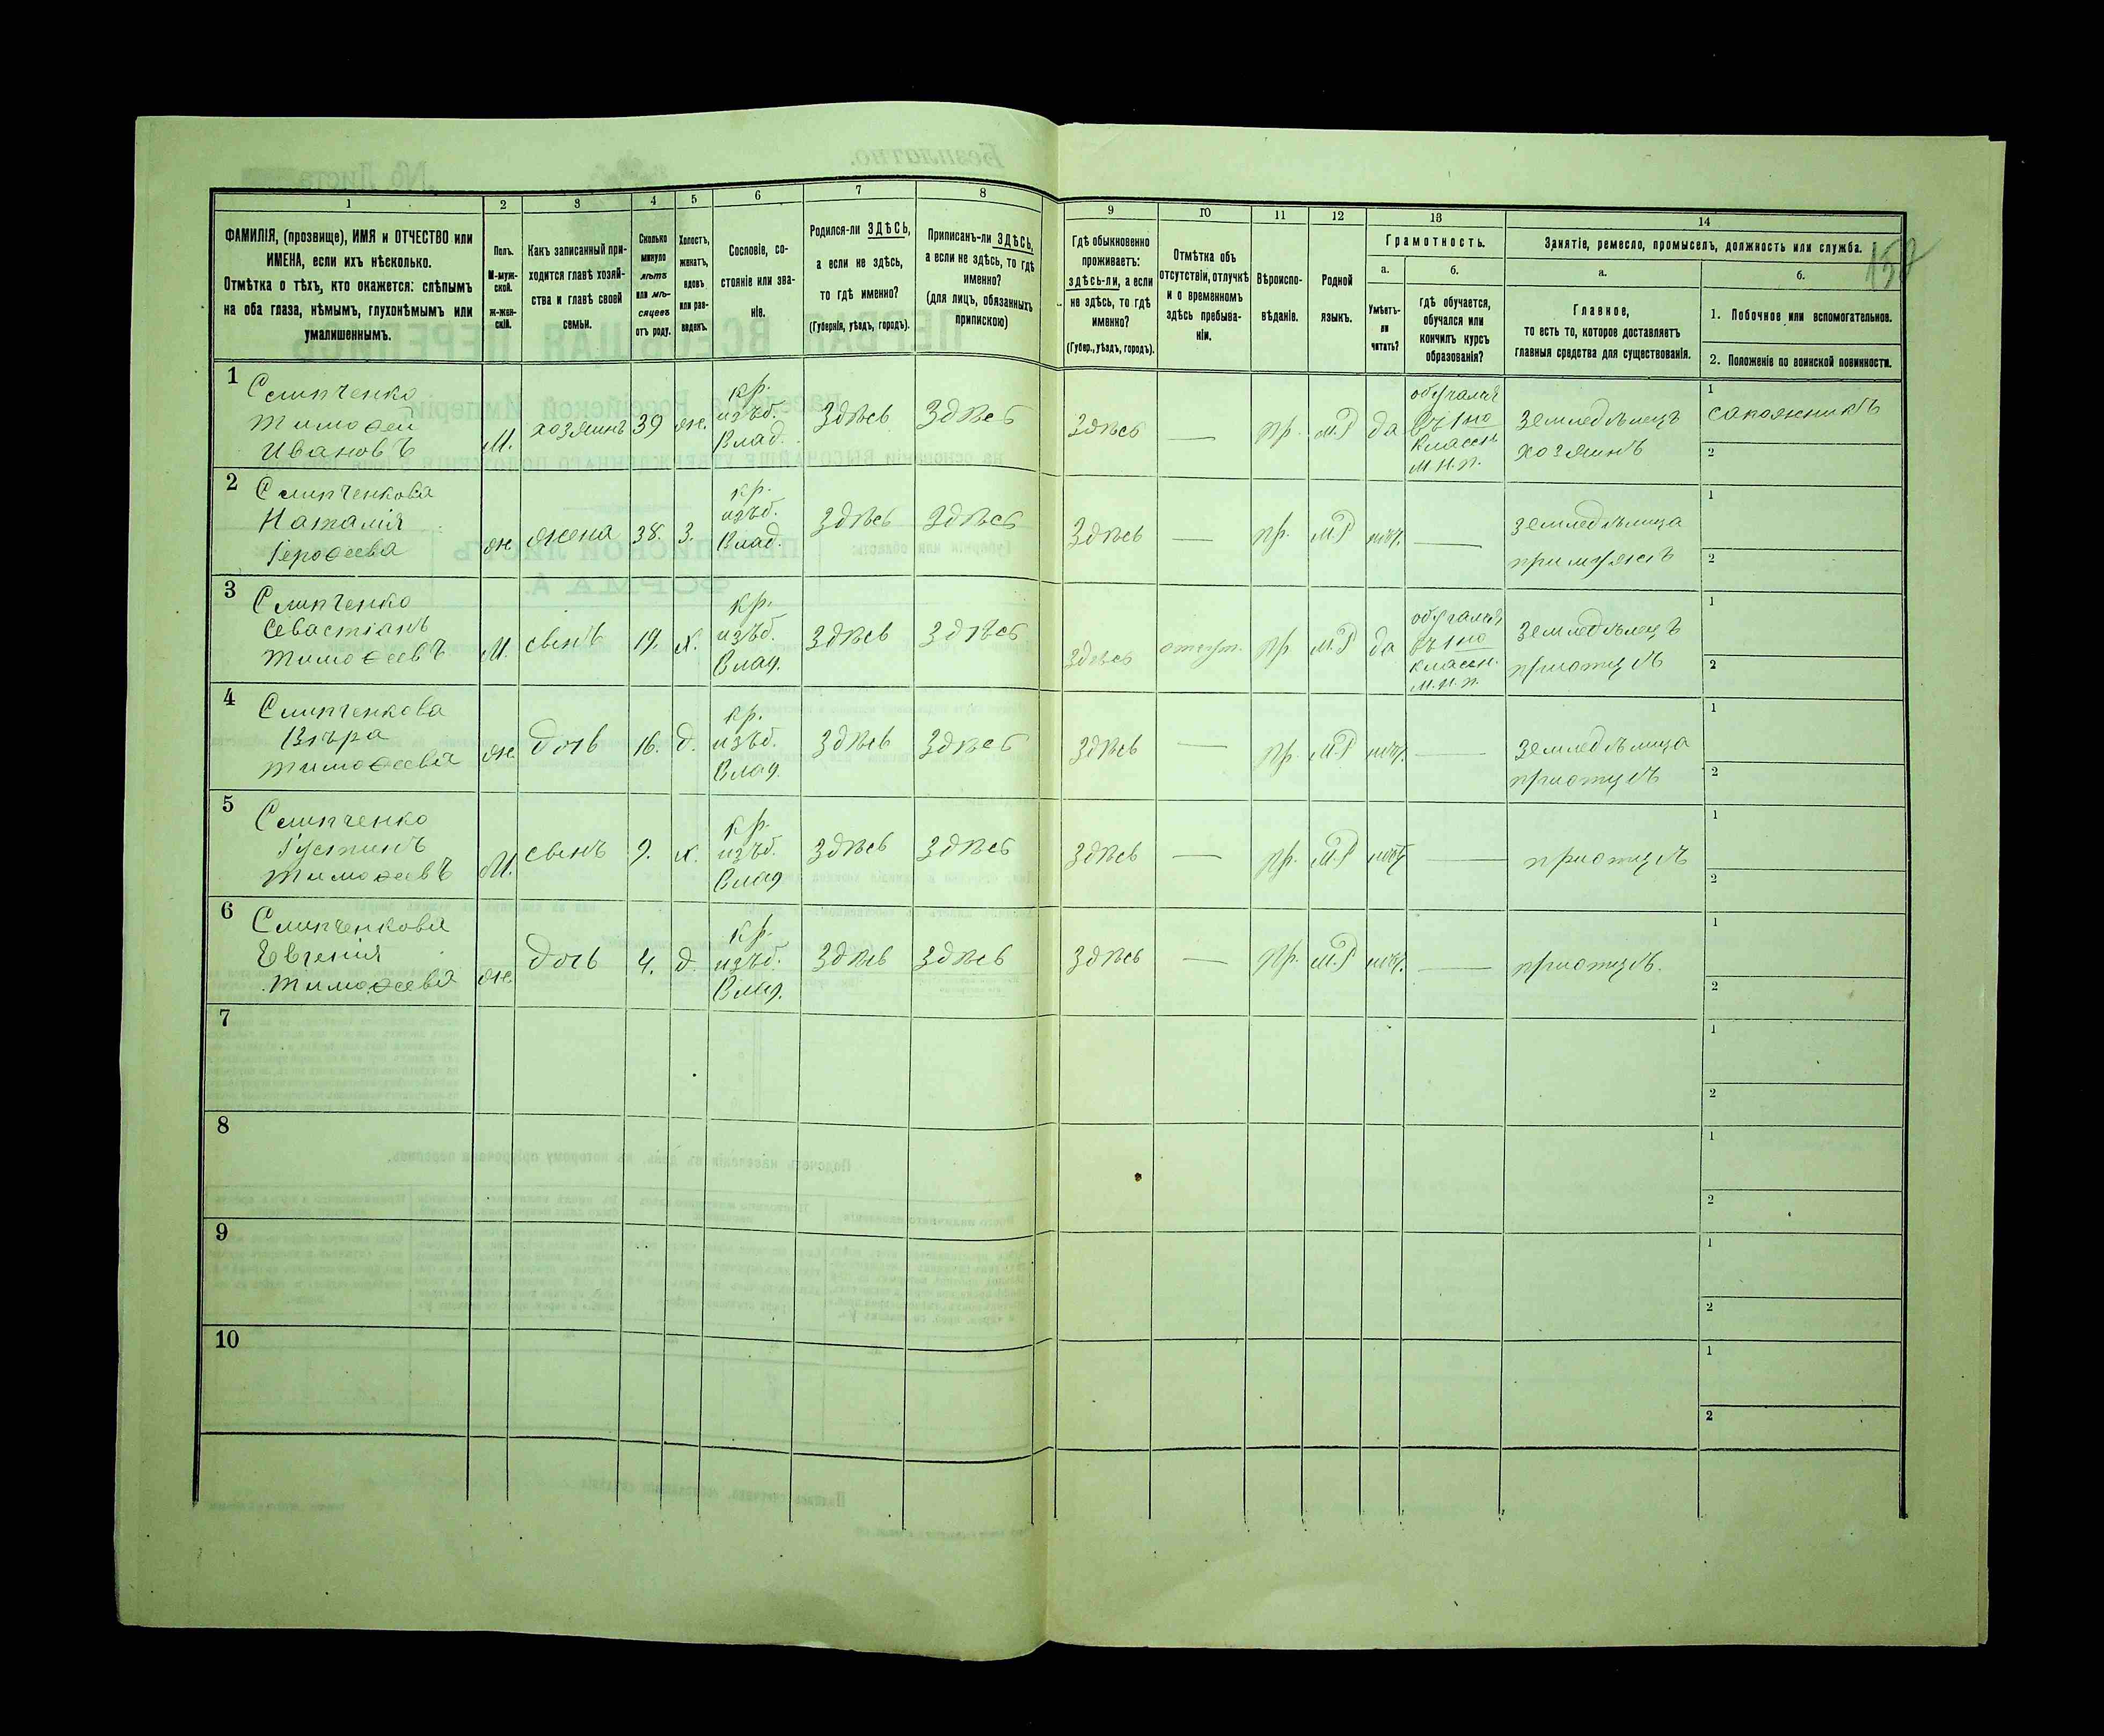 1 2 3 4 5 6 7 8
ФАМИЛІЯ, (прозвище), ИМЯ и ОТЧЕСТВО или
ИМЕНА, если ихъ нѣсколько.
Отмѣтка о тѣхъ, кто окажется: слѣпымъ
на оба глаза, нѣмымъ, глухонѣмымъ или
умалишеннымъ.
Полъ.
М-муж-
ской.
ж-жен-
скій.
Какъ записанный при-
ходится главѣ хозяй-
ства и главѣ своей
семьи.
Сколько
минуло
лѣтъ
или мѣ-
сяцевъ
отъ роду.
Холостъ,
женатъ,
вдовъ
или раз-
веденъ.
Сословіе, со-
стояніе или зва-
ніе.
Родился-ли ЗДѢСЬ,
а если не здѣсь,
то гдѣ именно?
(Губернія, уѣздъ, городъ).
Приписанъ-ли ЗДѢСЬ,
а если не здѣсь, то гдѣ
именно?
(для лицъ, обязанныхъ
припискою)
9 10 11 12 13 14
Гдѣ обыкновенно
проживаетъ:
здѣсь-ли, а если
не здѣсь, то гдѣ
именно?
(Губер., уѣздъ, городъ).
Отмѣтка объ
отсутствіи, отлучкѣ
и о временномъ
здѣсь пребыва-
ніи.
Вѣроиспо-
вѣданіе.
Родной
языкъ.
Грамотность.
а.
Умѣетъ-
ли
читать?
б.
гдѣ обучается,
обучался или
кончилъ курсъ
образованія?
Занятіе, ремесло, промыселъ, должность или служба.
а.
Главное,
то есть то, которое доставляетъ
главныя средства для существованія.
б.
1. Побочное или вспомогательное.
2. Положеніе по воинской повинности.
1
Слипченко
Тимофей
Ивановъ
М.
хозяинъ
39
ж.
кр.
изъб.
Влад.
Здѣсь
Здѣсь
Здѣсь
—
пр.
м.Р
да
обучался
въ 1но
классн.
м.н.п.
Земледѣлецъ
хозяинъ
1
сапожникъ
2
2
Слипченкова
Наталія
Герофеева
ж.
жена
38.
З.
кр.
изъб.
Влад.
Здѣсь
Здѣсь
Здѣсь
—
пр.
м.Р
—
земледѣлица
при мужѣ
1
2
3
Слипченко
Севастіанъ
Тимофеевъ
М.
сынъ
19.
х.
кр.
изъб.
Влад.
Здѣсь
Здѣсь
Здѣсь
отсут.
пр.
м.Р
да
обучался
въ 1но
классн.
м.н.п.
Земледѣлецъ
при отцѣ
1
2
4
Слипченкова
Вѣра
Тимофеева
ж.
дочь
16.
д.
кр.
изъб.
Влад.
Здѣсь
Здѣсь
Здѣсь
—
пр.
м.Р
—
земледѣлица
при отцѣ
1
2
5
Слипченко
Густинъ
Тимофеевъ
М.
сынъ
9.
х.
кр.
изъб.
Влад
Здѣсь
Здѣсь
Здѣсь
—
пр.
м.Р
—
при отцѣ
1
2
6
Слипченкова
Евгенія
Тимофеева
ж.
дочь
4.
д.
кр.
изъб.
Влад.
Здѣсь
Здѣсь
Здѣсь
—
пр.
м.Р
—
при отцѣ.
1
2
7
1
2
8
1
2
9
1
2
10
1
2